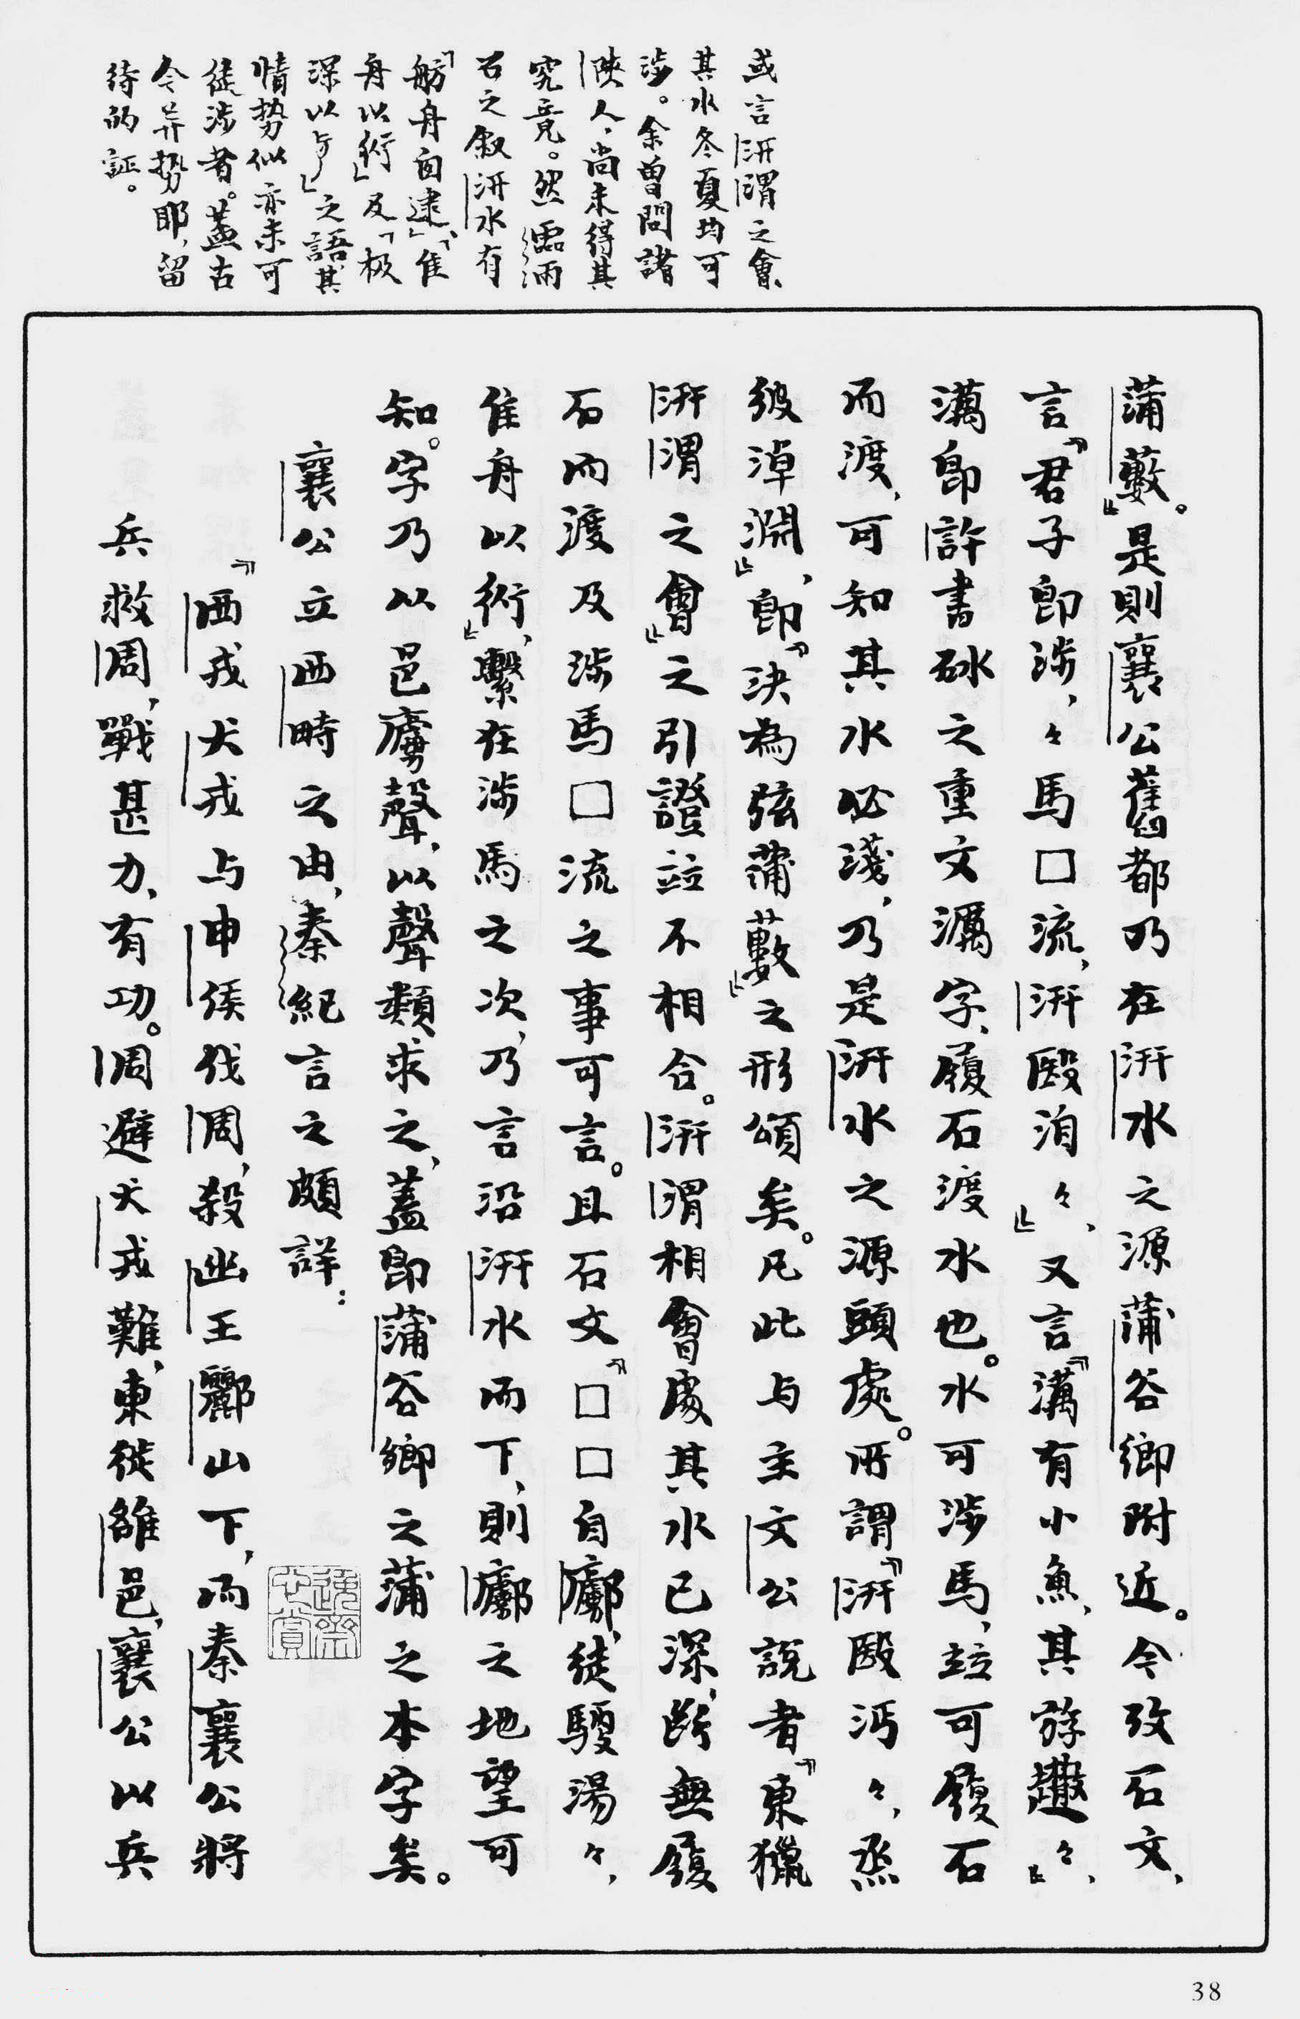 或言汧渭之會、
其水冬夏均可
涉。余曾問諸
陝人、尚未得其
究竟。然霝雨
石之叙汧水有
「舫舟囪逮」、「隹
舟以衍」及「极
深以」之語、其
情勢似亦未可
徒涉者。蓋古
今異勢耶、留
待的証。
蒲藪』。是則襄公舊都乃在汧水之源蒲谷鄉附近。今攷石文、
言『君子卽涉、々馬□流、汧殹洎々、』又言『澫有小魚、其斿趣々、』
澫卽許書砅之重文濿字、履石渡水也。水可涉馬、竝可履石
而渡、可知其水必淺、乃是汧水之源頭處。所謂『汧殹沔々、烝
彼淖淵』、卽『決為弦蒲藪』之形頌矣。凡此与主文公說者『東獵
汧渭之會』之引證竝不相合。汧渭相會處其水已深、斷無履
石而渡及涉馬□流之事可言。且石文『□□自廓、徒驋湯々、
隹舟以衍』、繫在涉馬之次、乃言沿汧水而下、則廓之地望可
知。字乃以邑膚聲、以聲類求之、蓋卽蒲谷鄉之蒲之本字矣。
襄公立西畤之由、秦紀言之頗詳：
『西戎犬戎与申侯伐周、殺幽王酈山下、而秦襄公將
兵救周、戰甚力、有功。周避犬戎難、東徙雒邑、襄公以兵
38